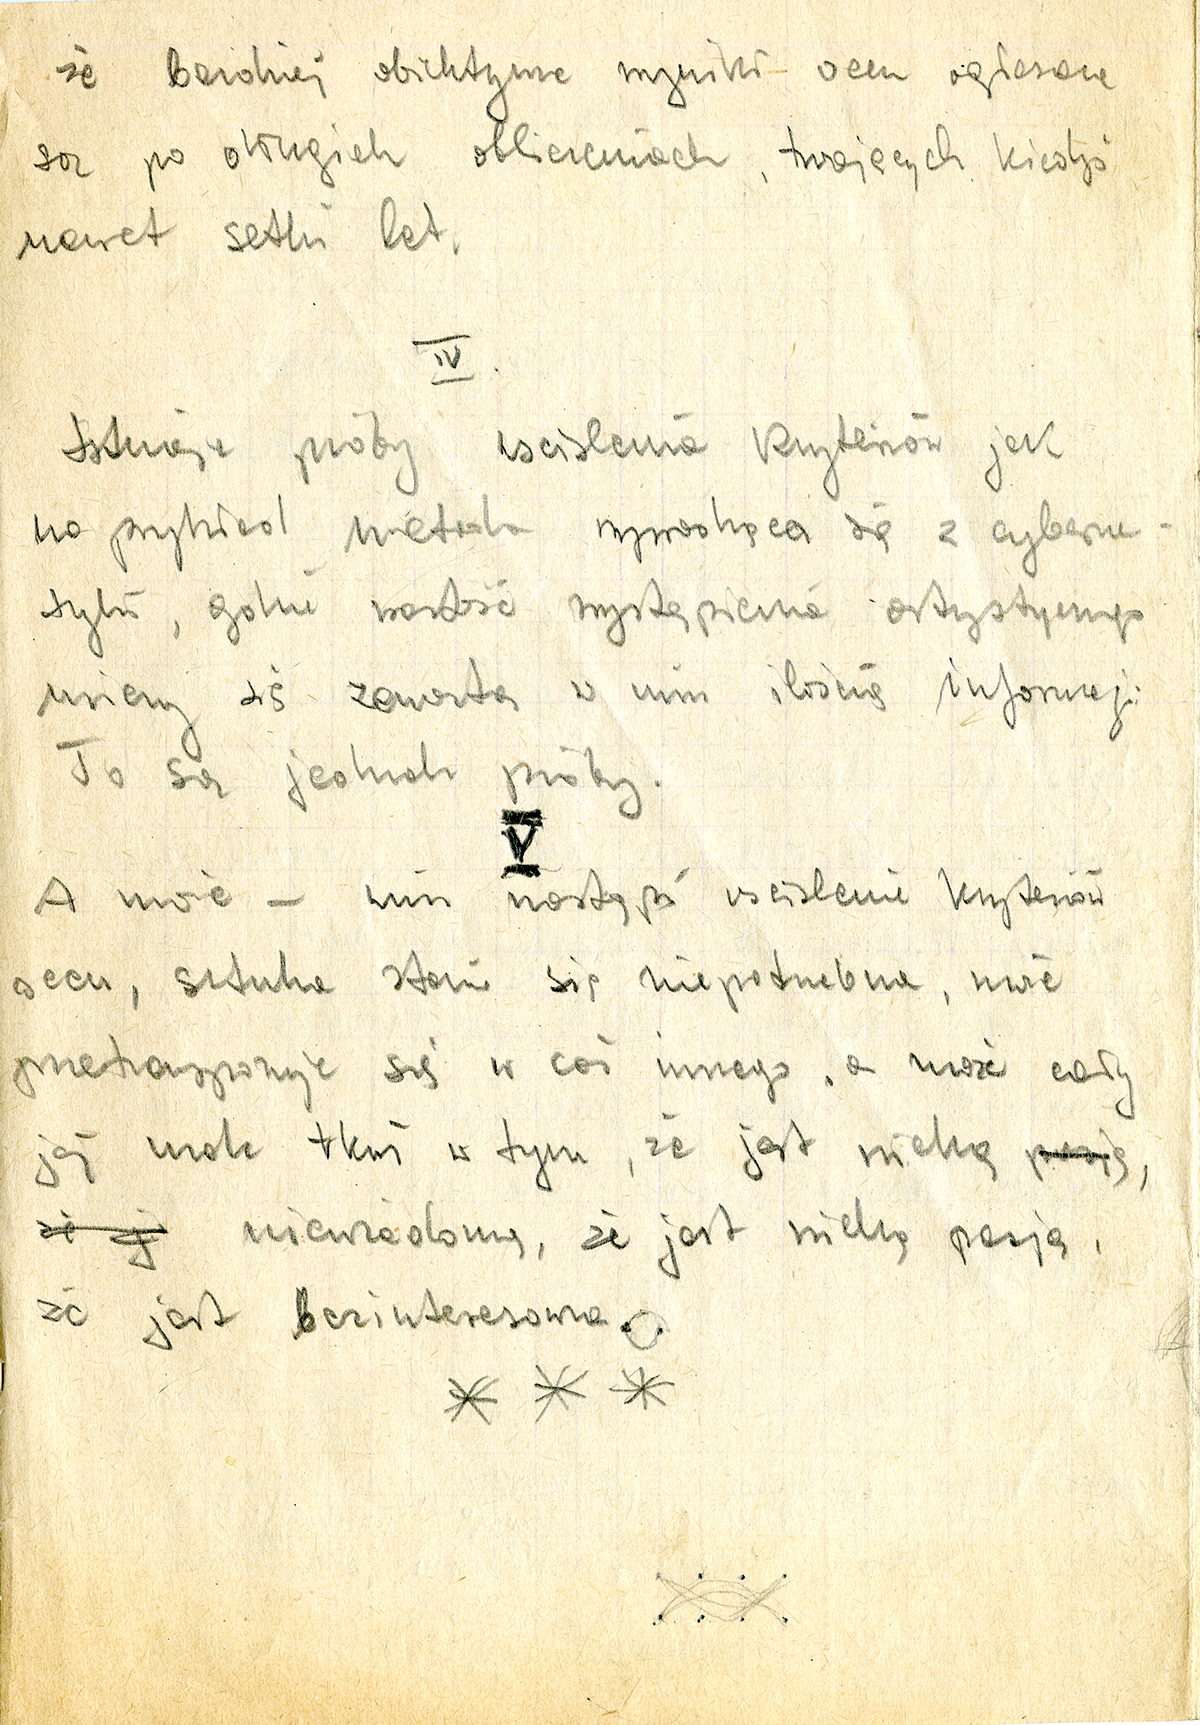 że bardziej obiektywne wyniki ocen ogłaszane
są po długich obliczeniach, trwających kiedyś
nawet setki lat.
IV.
Istnieją próby uściślenia kryteriów jak
na przykład metoda wywodząca się z cyberne-
tyki, gdzie wartość wystąpienia artystycznego
mierzy się zawartą w nim ilością informacji
To są jednak próby.
V
A może – nim nastąpi uściślenie kryteriów
ocen, sztuka stanie się niepotrzebna, może
przetransponuje się w coś innego, a może cały
jej urok tkwi w tym, że jest wielką pasją,
że j niewiadomą, że jest wielką pasją,
że jest bezinteresowna.
* * *